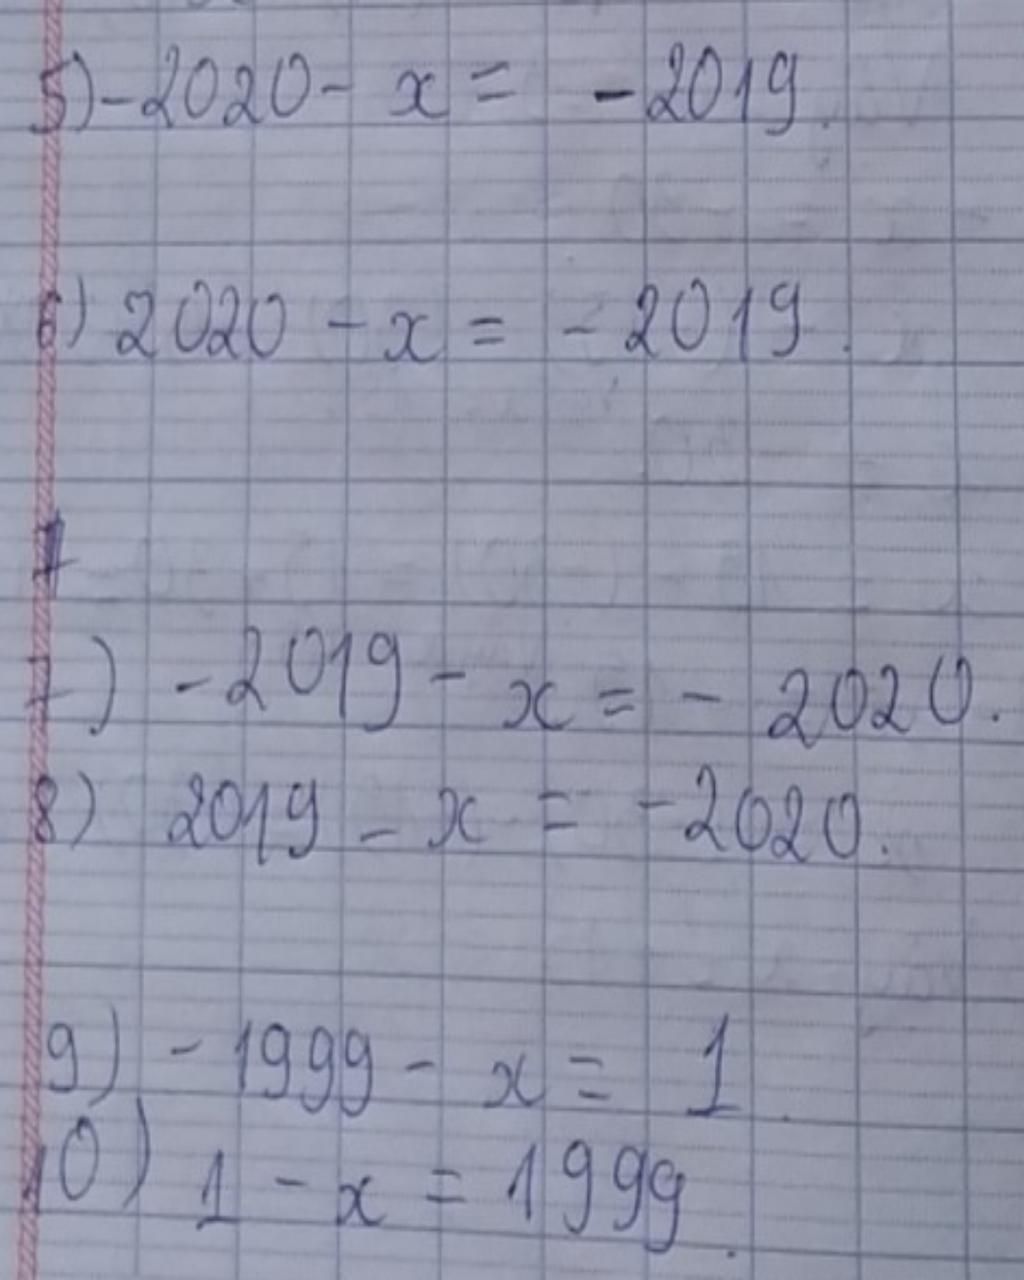 5) -2020 - x = -2019.
6) 2020 - x = -2019.
7) -2019 - x = - 2020.
8) 2019 - x = -2020.
9) -1999 - x = 1.
10) 1 - x = 1999.